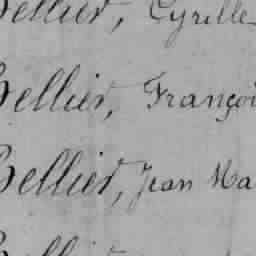 ellier, Cyrille
ellier, Françoi
ellier, Jean Ma